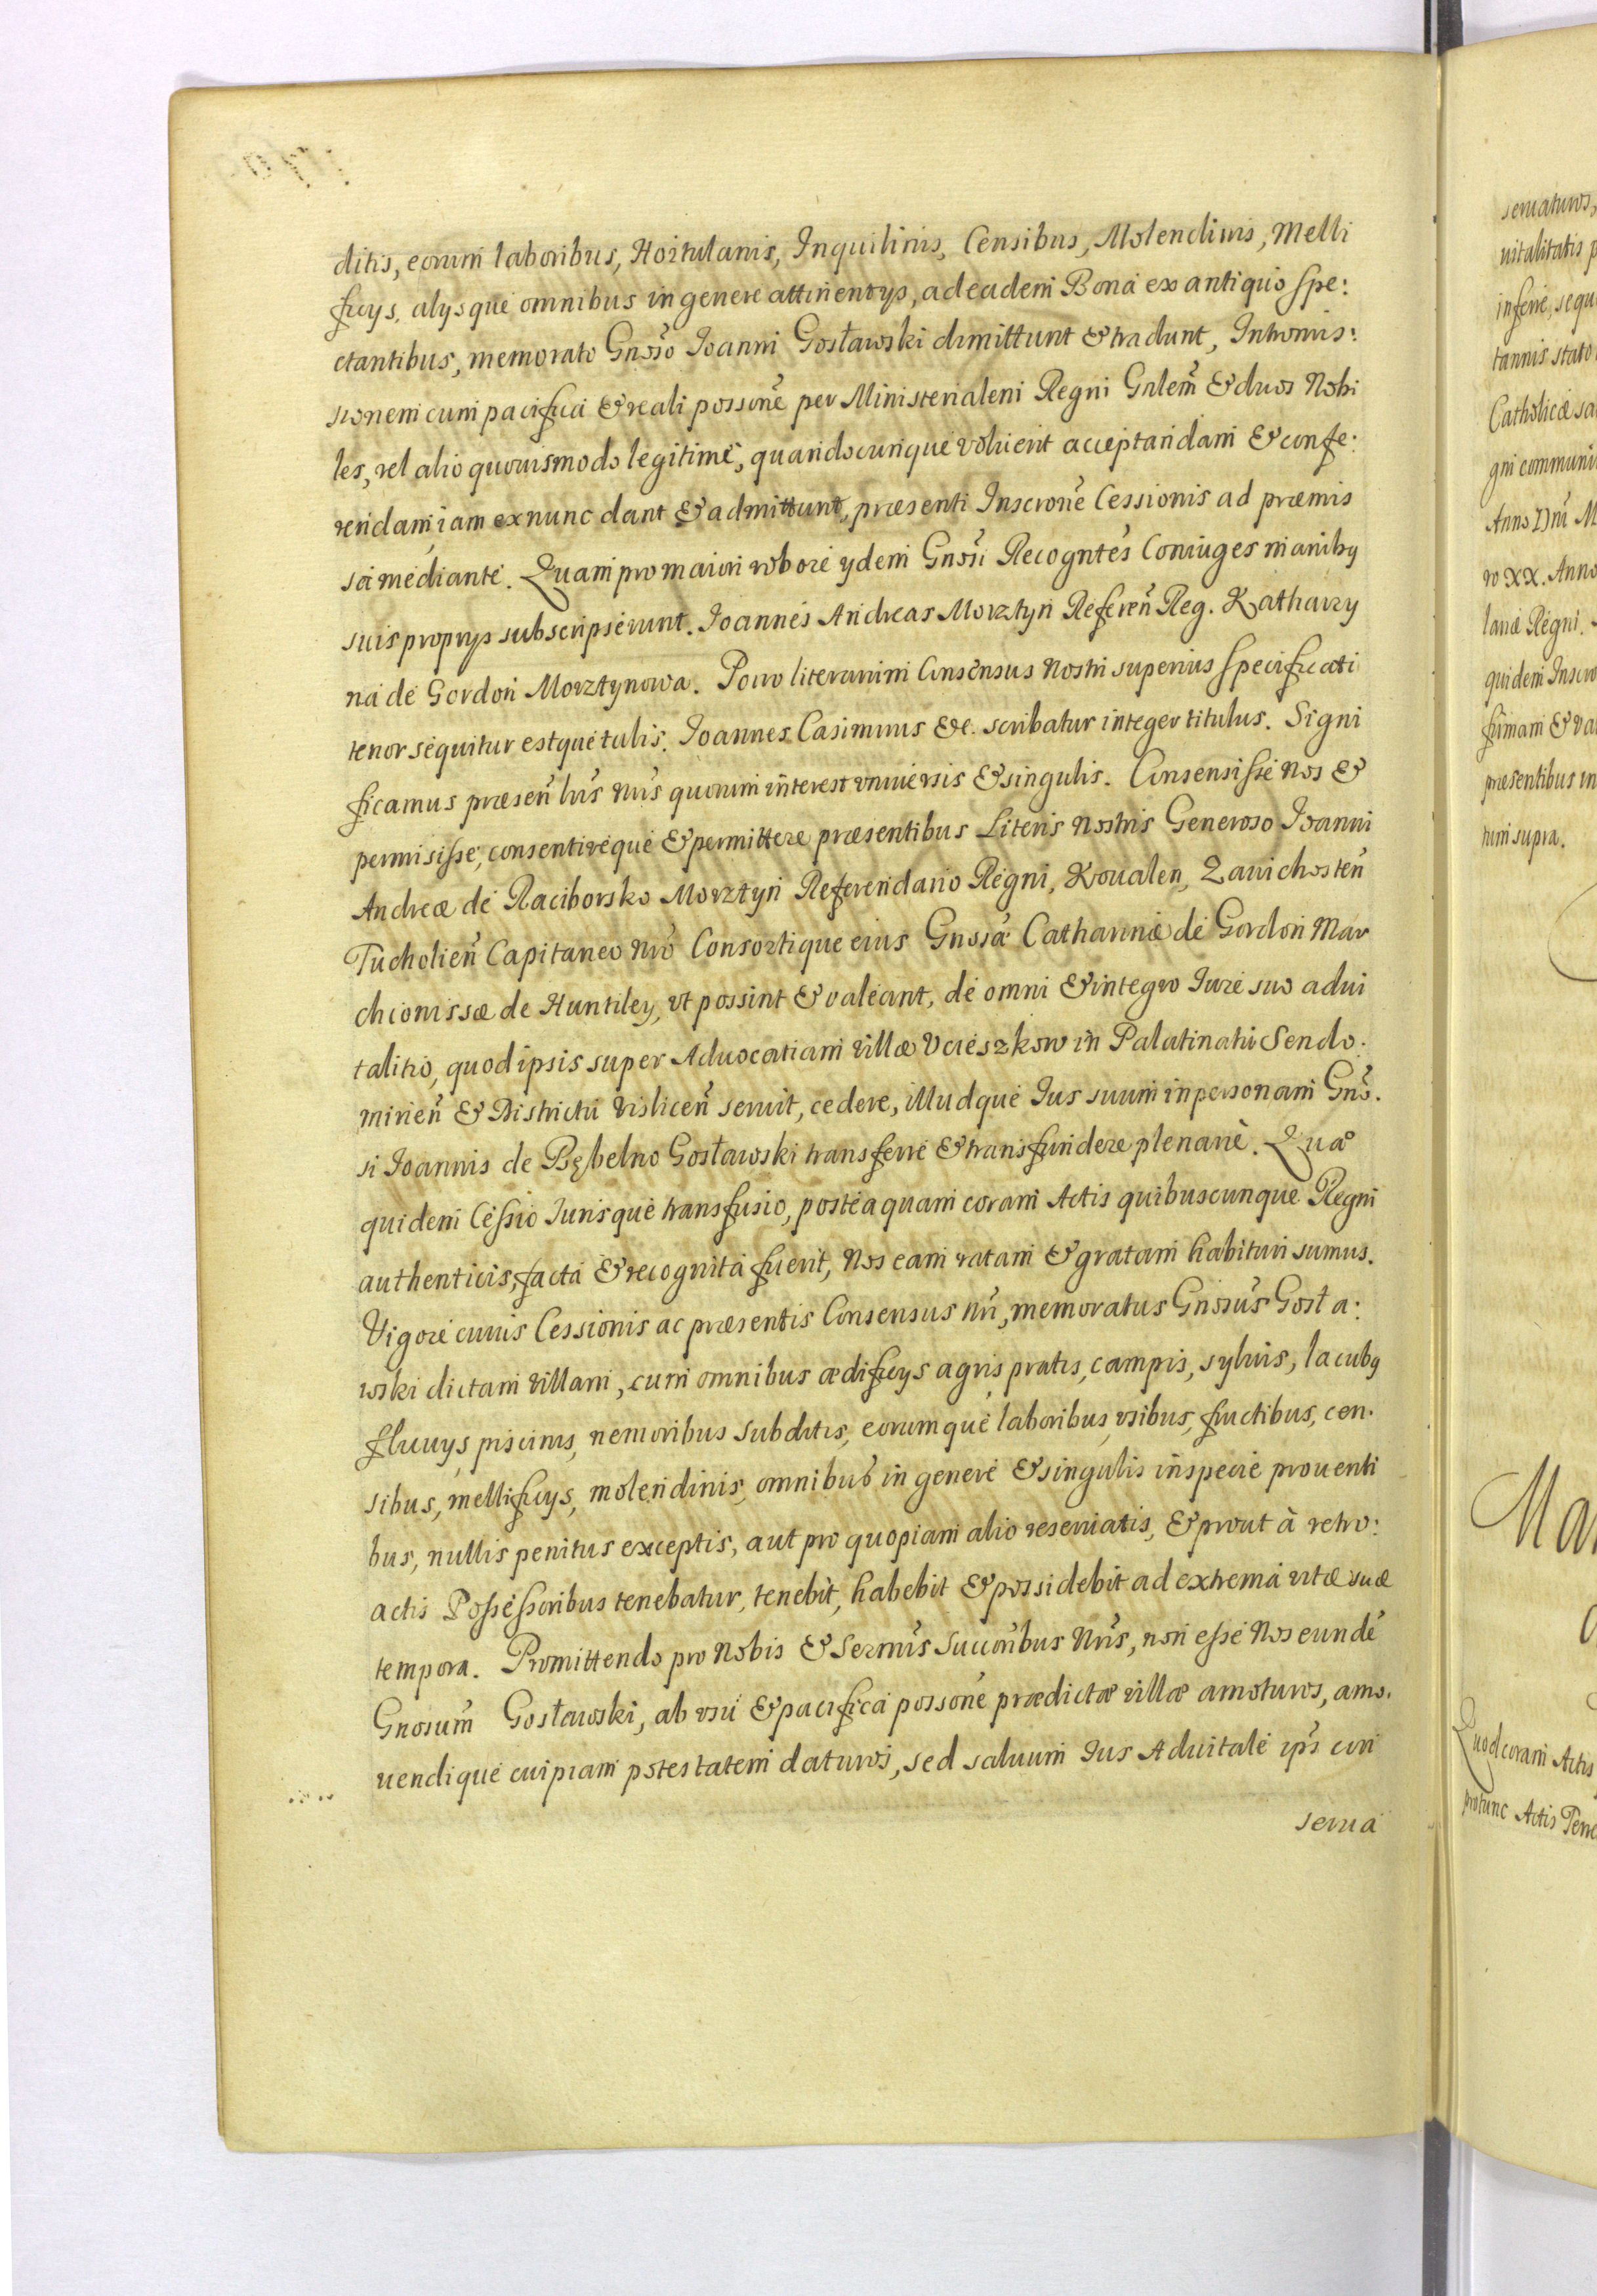 ditis, eorum laboribus, Hortulanis, Inquilinis, Censibus, Molendinis, Melli
ficijs, alijsque omnibus in genere attinentijs, ad eadem Bona ex antiquo spe:
ctantibus, memorato Gnoso Joanni Gosławski dimittunt & tradunt, Intromis:
sionem cum pacifica & reali possone per Ministerialem Regni Gnlem & duos Nobi
les, vel alio quouismodo legitime, quandocunque voluerit acceptandam & confe:
rendam iam ex nunc dant & admittunt, præsenti Inscrone Cessionis ad præmis
sa mediante. Quam pro maiori robore ijdem Gnosi Recogntes Coniuges manibq
suis proprijs subscripserunt. Joannes Andreas Morztyn Referen Reg. Katharzy
na de Gordon Morztynowa. Porro literarum Consensus Nostri superius specificati
tenor sequitur estque talis. Joannes Casimirus &c. scribatur integer titulus. Signi
ficamus præsen lris nris quorum interest vniuersis & singulis. Consensisse Nos &
permisisse, consentireque & permittere præsentibus Literis Nostris Generoso Joanni
Andreæ de Raciborsko Morztyn Referendario Regni, Kovalen, Zawichosten
Tucholien Capitaneo Nro Consortique eius Gnosæ Catharinæ de Gordon Mar
chionissæ de Huntiley, vt possint & valeant, de omni & integro Jure suo adui
talitio, quod ipsis super Aduocatiam villæ Vcieszkow in Palatinatu Sendo:
mirien & Districtu Vislicen seruit, cedere, illudque Jus suum in personam Gno.
si Joannis de Bębelno Gosławski transferre & transfundere plenarie. Quæ
quidem Cessio Jurisque transfusio, posteaquam coram Actis quibuscunque Regni
authenticis, facta & recognita fuerit, Nos eam ratam & gratam habituri sumus.
Vigore cuius Cessionis ac præsentis Consensus nri, memoratus Gnosus Gosła:
wski dictam villam, cum omnibus ædificijs agris pratis, campis, syluis, lacubq
fluuijs piscinis, nemoribus subditis, eorumque laboribus, vsibus, fructibus, cen.
sibus, mellificijs, molendinis, omnibus in genere & singulis in specie prouenti
bus, nullis penitus exceptis, aut pro quopiam alio reseruatis, & prout à retro:
actis Possessoribus tenebatur, tenebit, habebit & possidebit ad extrema vitæ suæ
tempora. Promittendo pro Nobis & Sermis Succoribus Nris, non esse Nos eunde
Gnosum Gosławski, ab vsu & pacifica possone prædictæ villæ amoturos, amo.
uendique cuipiam potestatem daturos, sed saluum Jus Aduitale ips con
serua
seruaturos,
uitalitatis p
inferre, sequ
tannis stato
Catholicæ sa
gni communi
Anno Dni M
ro XX. Anno
laniæ Regni.
quidem Inscro
firmam & va
præsentibus in
tum supra.
Ma
Quod coram Actis
protunc Actis Tene